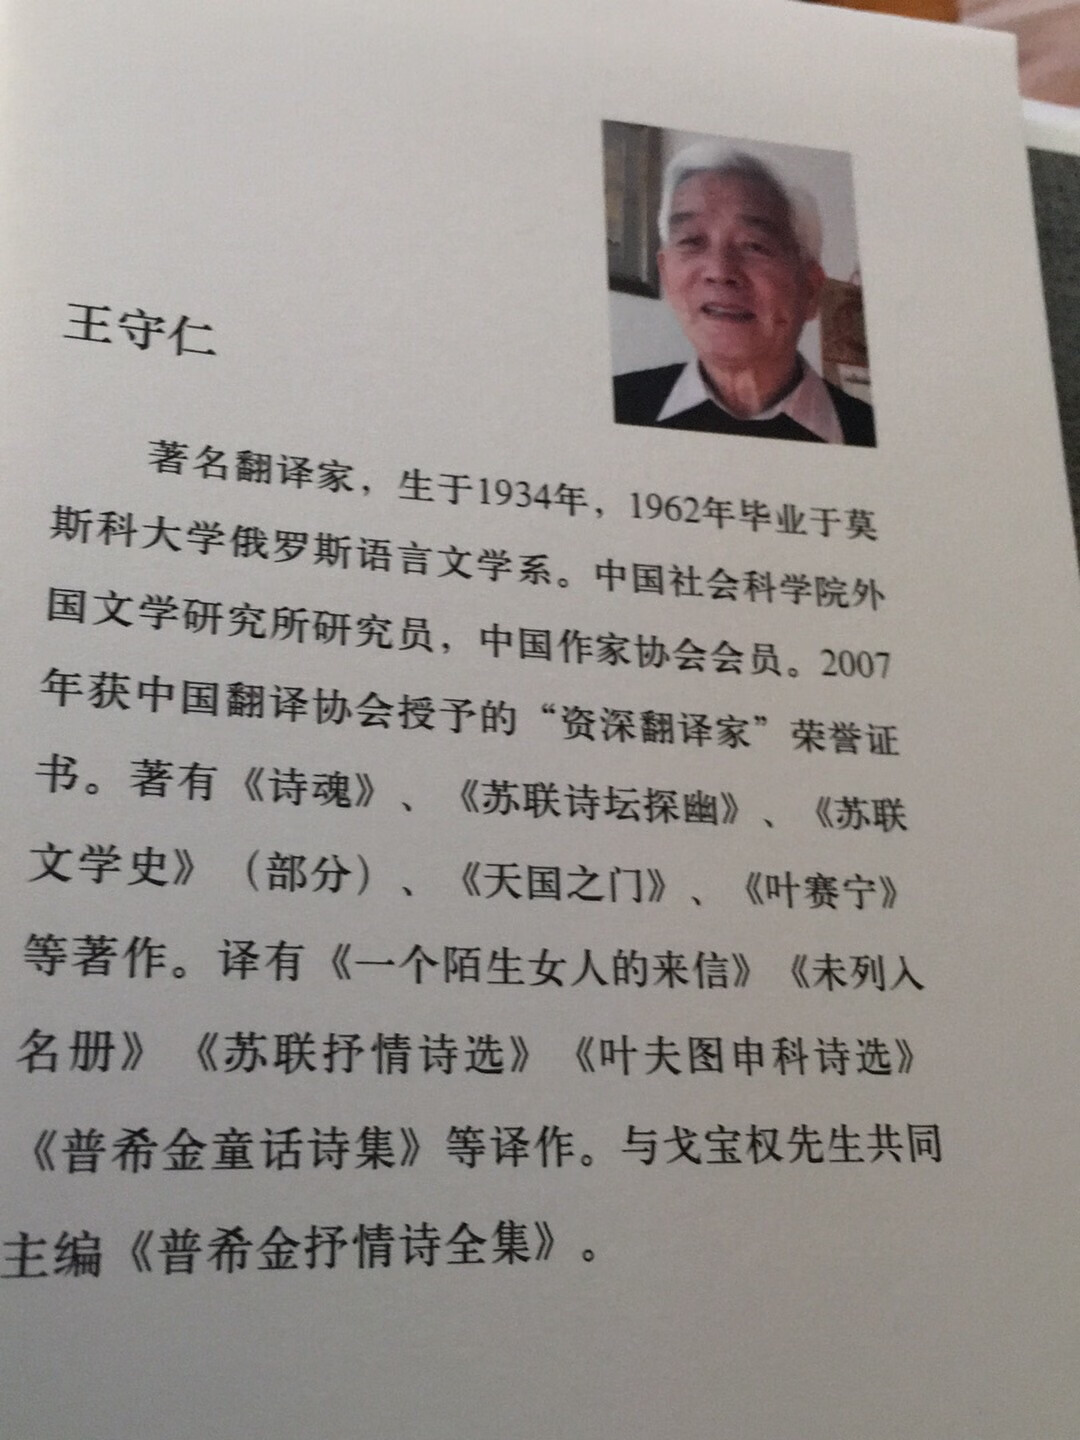 王守仁
著名翻译家，生于1934年，1962年毕业于莫
斯科大学俄罗斯语言文学系。中国社会科学院外
国文学研究所研究员，中国作家协会会员。2007
年获中国翻译协会授予的“资深翻译家”荣誉证
书。著有《诗魂》、《苏联诗坛探幽》、《苏联
文学史》（部分）、《天国之门》、《叶赛宁》
等著作。译有《一个陌生女人的来信》《未列入
名册》《苏联抒情诗选》《叶夫图申科诗选》
《普希金童话诗集》等译作。与戈宝权先生共同
主编《普希金抒情诗全集》。